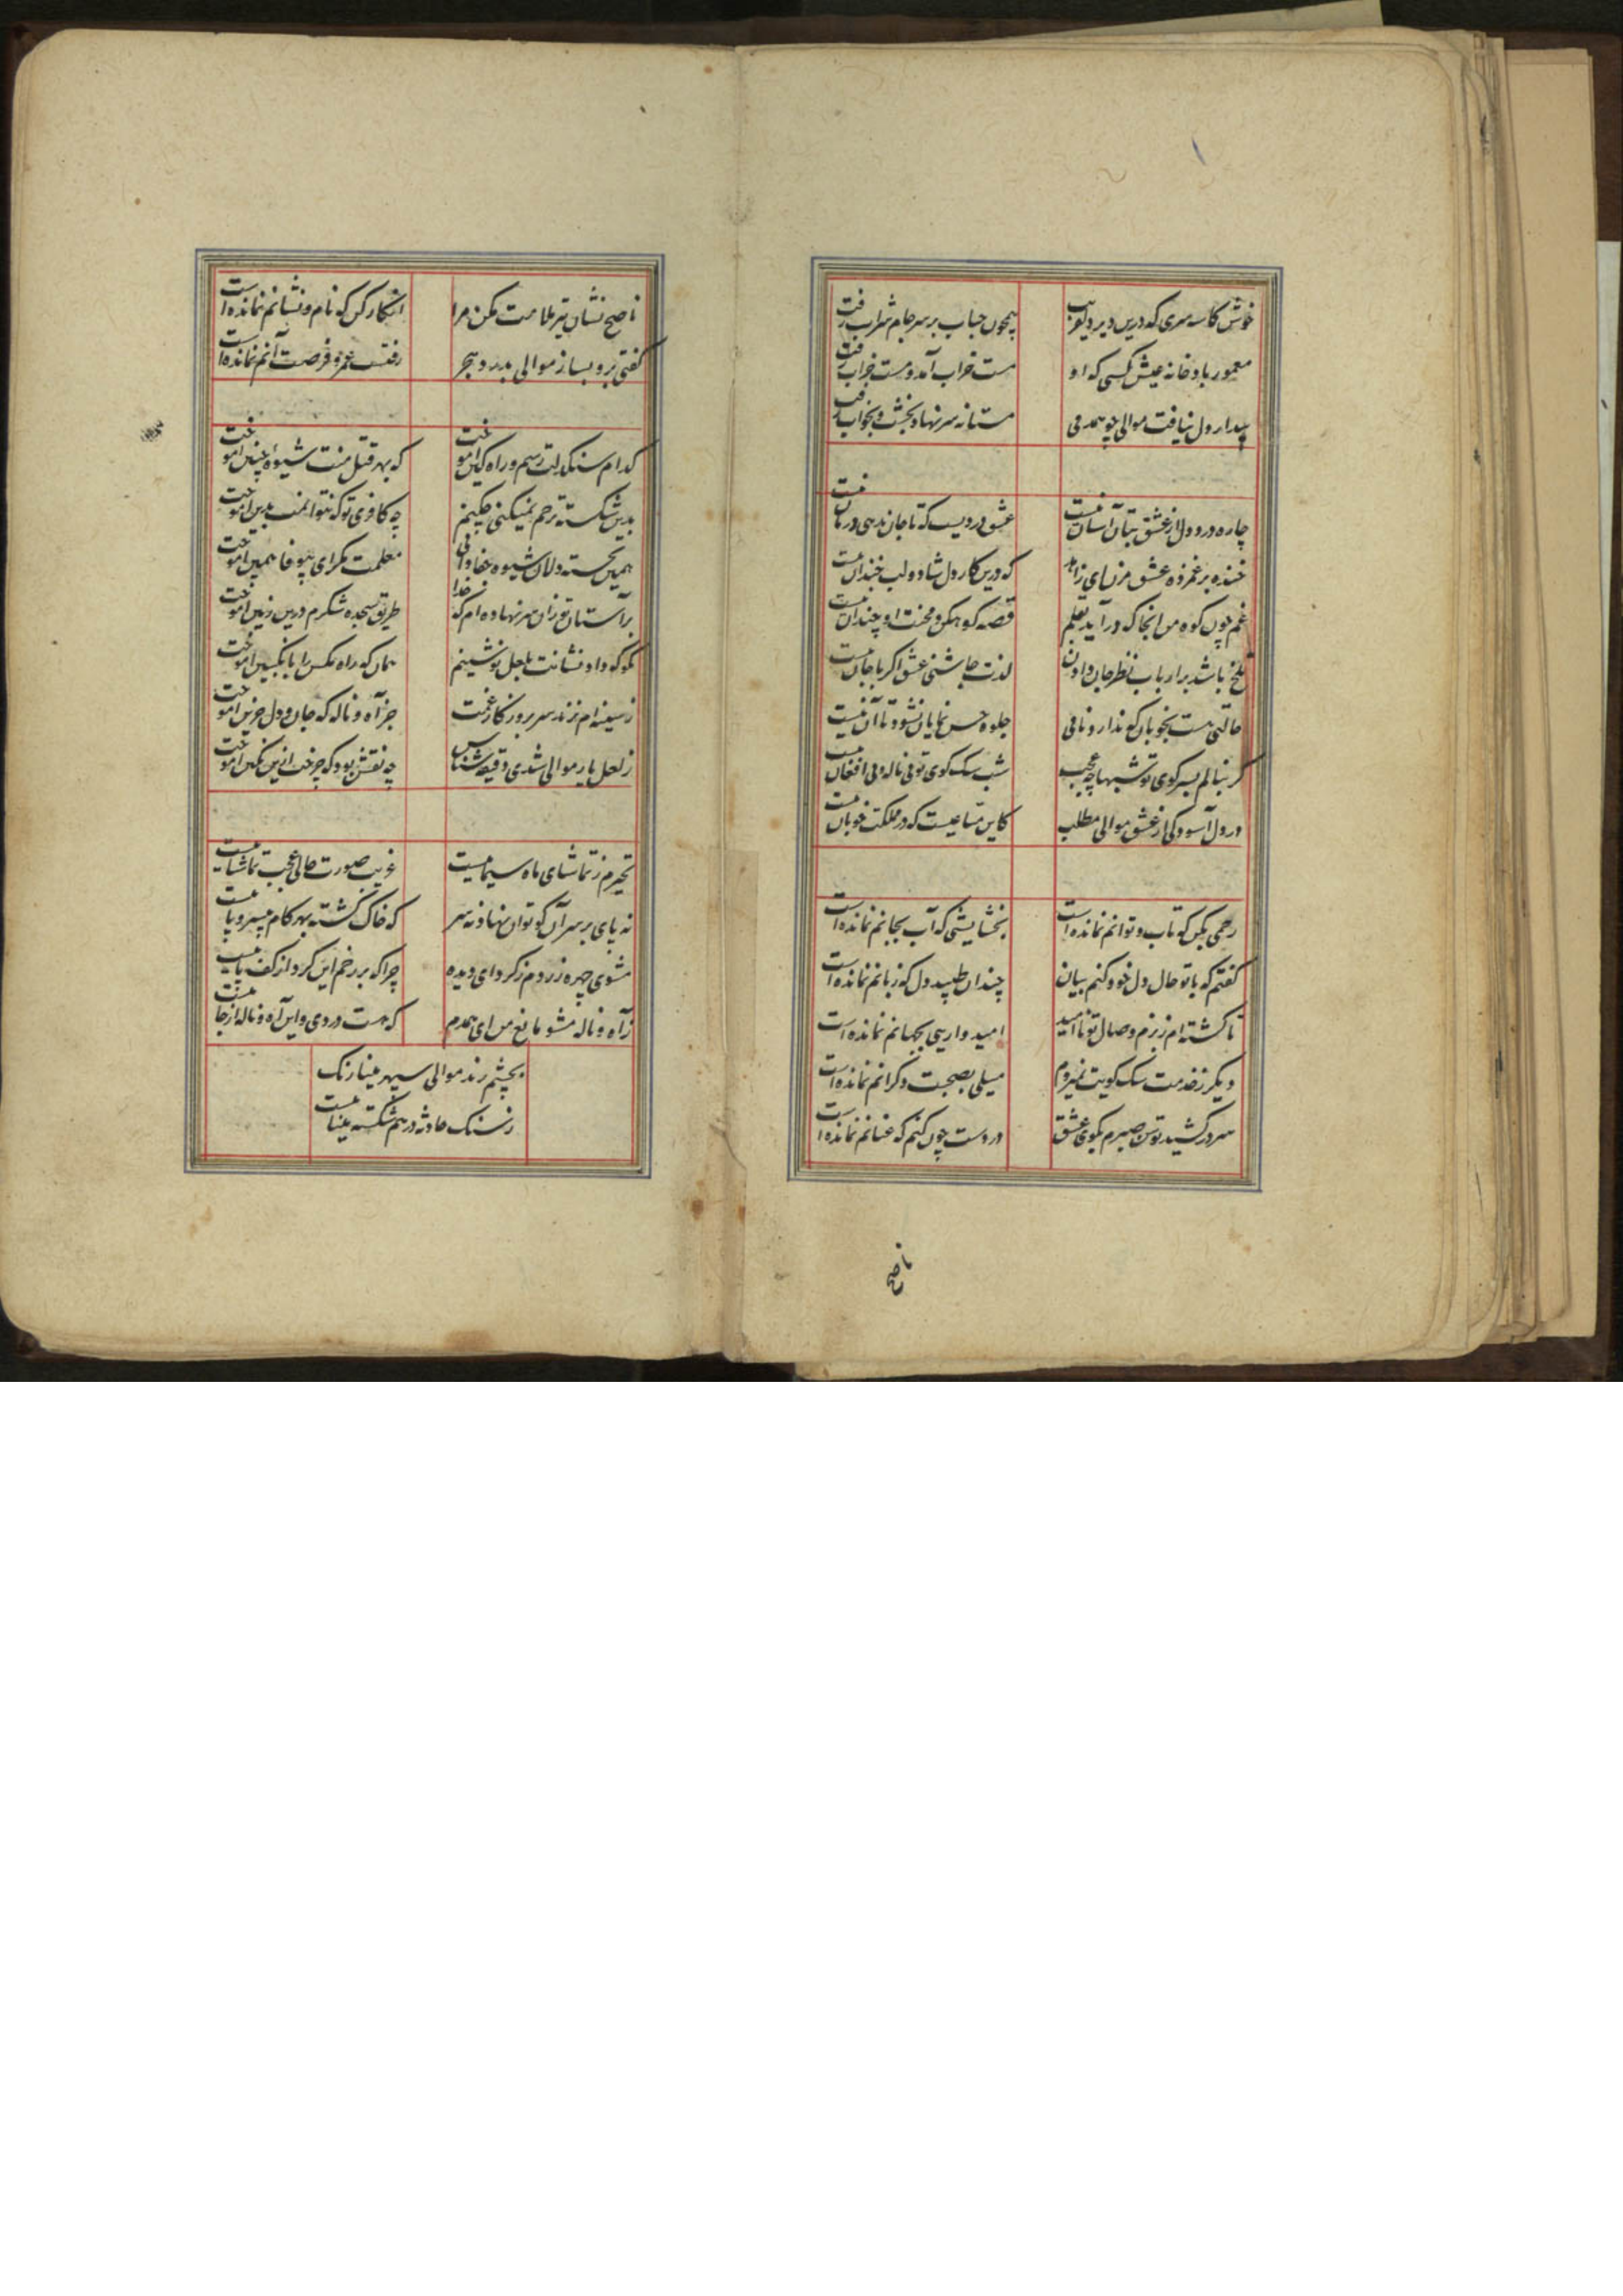 خوش کاسه سری که درین دیر دیوریب همچون حباب بر سر جام شراب رفت
معمور باد خانه عیش کسی که او مست خراب آمد و مست خراب رفت
بیدار دل نیافت موالی چو همدمی مستانه سر نهاد بخشت و بخواب رفت
چاره درد دل از عشق بتان آسان نیست عشق دردیست که تا جان ندهی درمان نیست
خنده بر غمزده عشق مزن ای زاهد که درین کار دل شاد و لب خندان نیست
غم چون کوه من انجا که در آید بقلم قصه کوهکن و محنت او چندان نیست
تلخ باشد بر ارباب نظر جان دادن لذت چاشنی عشق اگر با جان نیست
حالتی هست بخوبان که ندارد نامی جلوه حسن نمایان نشود تا آن نیست
گر ننالم بسر کوی تو شبها چه عجب شب سک کوی تو بی ناله و بی افغان نیست
در دل آسودکی از عشق موالی مطلب کاین متاعیست که در مملکت خوبان نیست
رحمی بکن که تاب و توانم نمانده است بخشایشی که آب بجانم نمانده است
کفتم که با تو حال دل خود کنم بیان چندان طپید دل که زبانم نمانده است
تا کشته ام ز بزم وصال تو نا امید امیدواریی بجهانم نمانده است
دیکر ز خدمت سک کویت نمیروم میلی بصحبت دکرانم نمانده است
سر در کشید توسن صبرم بکوی عشق در دست چون کنم که عنانم نمانده است
ناصح
ناصح نشان تیر ملامت مکن مرا انکار کن که نام و نشانم نمانده است
کفتی برو بساز موالی بدرد هجر رفتست عمر و فرصت آنم نمانده است
کدام سنکدلت رسم و راه کین آموخت که بهر قتل منت شیوهٔ چنین آموخت
بدین شکسته ترحم نمیکنی چکنم چه کافری تو که نتوانمت بدین آموخت
همین بخسته دلان شیوه جفا دانی معلمت مکر ای بیوفا همین آموخت
بر آستان تو زان سر نهاده ام که خدا طریق سجده شکرم درین زمین آموخت
بکو که داد نشانت بلعل نوشینم همان که راه مکس را بانکبین آموخت
ز سینه ام نزند سر بروزکار غمت جز آه و ناله که جان و دل حزین آموخت
ز لعل یار موالی شدی دقیقه شناس چه نقش بود که چرخت ازین نکین آموخت
تحیرم ز تماشای ماه سیماییست غریب صورت حالی عجب تماشاییست
نه پای بر سر آن کو توان نهاد نه سر که خاک کشته بهر کام بیسر و پاییست
مشوی چهره زردم ز کرد ای دیده چرا که بر رخم این کرد از کف پاییست
ز آه و ناله مشو مانع من ای همدم که هست دردی و این آه و ناله از جاییست
بچشم رند موالی سپهر مینا رنک
ز سنک حادثه در هم شکسته میناییست